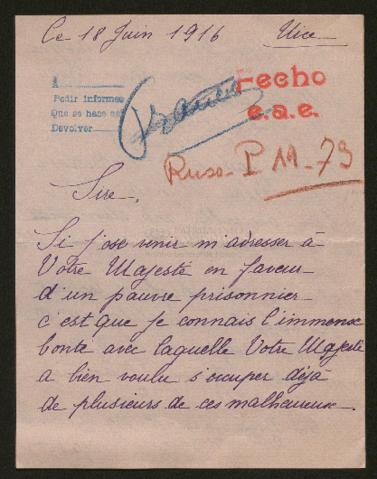 Ce 18 Juin 1916 Nice
Fecho
e.a.e.
À
Pedir informes
Que se hace
Devolver
Ruso P 11-79
Sire,
Si j'ose venir m'adresser à
Votre Majesté en faveur
d'un pauvre prisonnier
c'est que je connais l'immense
bonté avec laquelle Votre Majesté
a bien voulu s'occuper déjà
de plusieurs de ces malheureux.